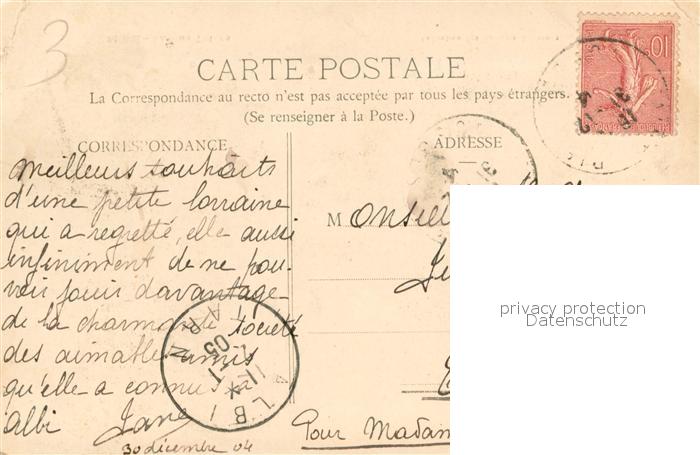 3
10
CARTE POSTALE
La Correspondance au recto n'est pas acceptée par tous les pays étrangers.
(Se renseigner à la Poste.)
CORRESPONDANCE
ADRESSE
Meilleurs souhaits
d'une petite lorraine
qui a regretté, elle aussi
infiniment de ne pou-
voir jouir davantage
de la charmante société
des aimables amis
qu'elle a connus à
albi Jane
30 décembre 04
Monsieu
Pour Madam
ALBI
TARN
05
privacy protection
Datenschutz